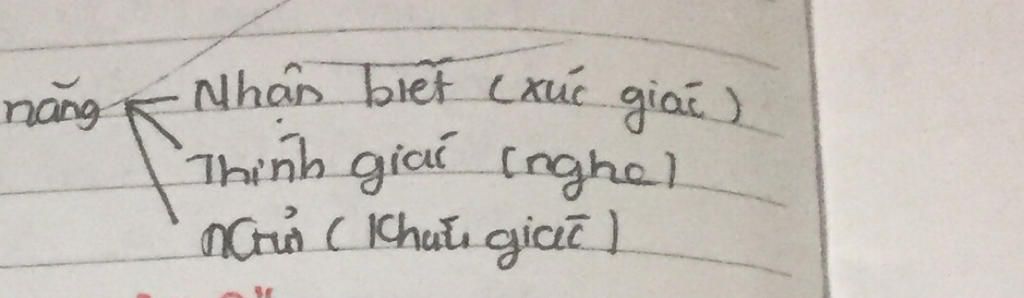 năng Nhận biết (xúc giác)
Thính giác (nghe)
ngửi (Khứu giác)